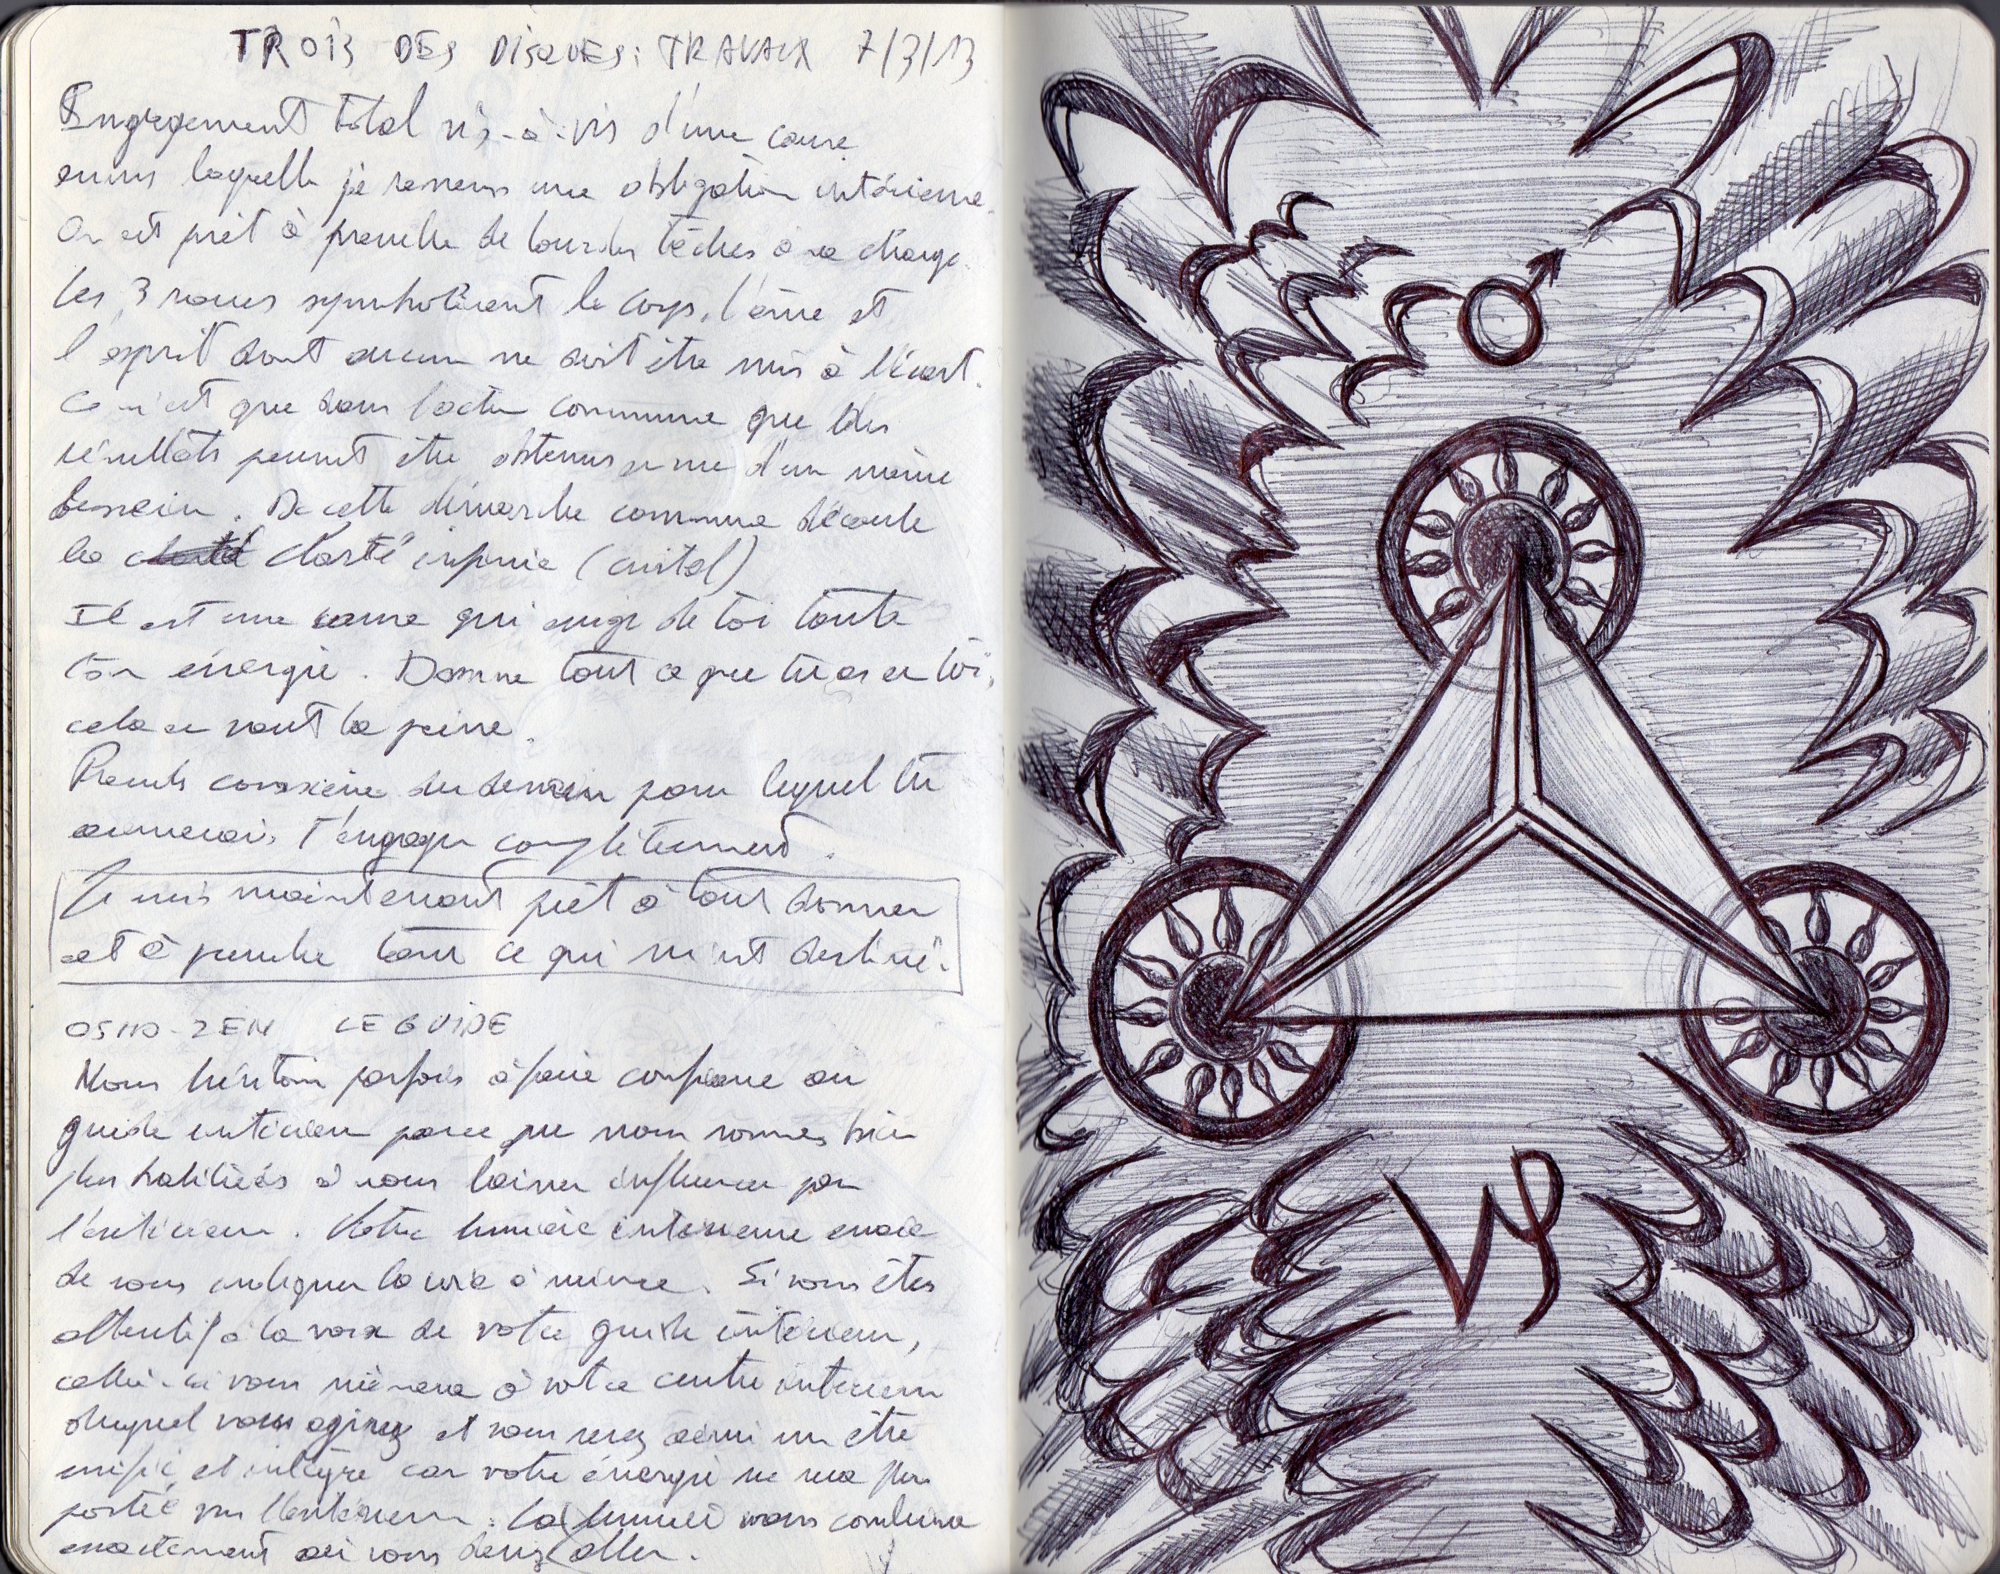 TROIS DES DISQUES: TRAVAUX 7/3/13
Engagement total vis-à-vis d'une cause
envers laquelle je ressens une obligation intérieure.
On est prêt à prendre de lourdes tâches à sa charge.
Les 3 roues symbolisent le corps, l'âme et
l'esprit dont aucun ne doit être mis à l'écart.
Ce n'est que dans l'action commune que des
résultats peuvent être obtenus en vue d'un même
dessein. De cette démarche commune découle
la clarté infinie (cristal)
Il est une cause qui exige de toi toute
ton énergie. Donne tout ce que tu as en toi,
cela en vaut la peine.
Prends conscience du dessein pour lequel tu
aimerais t'engager complètement.
Je suis maintenant prêt à tout donner
et à prendre tout ce qui m'est destiné.
OSHO-ZEN LE GUIDE
Nous hésitons parfois à faire confiance au
guide intérieur parce que nous sommes bien
plus habitués à nous laisser influencer par
l'extérieur. Votre lumière intérieure essaie
de vous indiquer la voie à suivre. Si vous êtes
attentif à la voix de votre guide intérieur,
celui-ci vous mènera à votre centre intérieur
duquel vous agirez et vous serez ainsi un être
unifié et intègre car votre énergie ne sera plus
portée vers l'extérieur. La lumière vous conduira
exactement où vous devez aller.
♂
♑